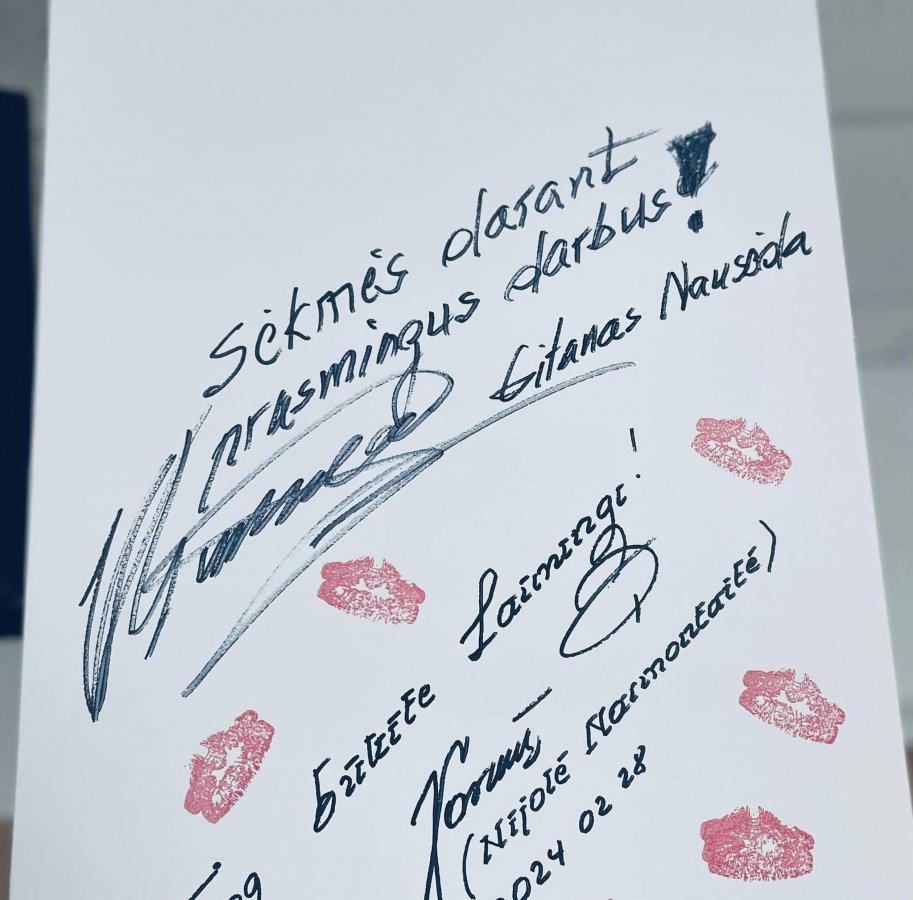 Sėkmės darant
prasmingus darbus!
Gitanas Nausėda
Būkite Laimingi!
(Nijolė Narmontaitė)
2024 02 28